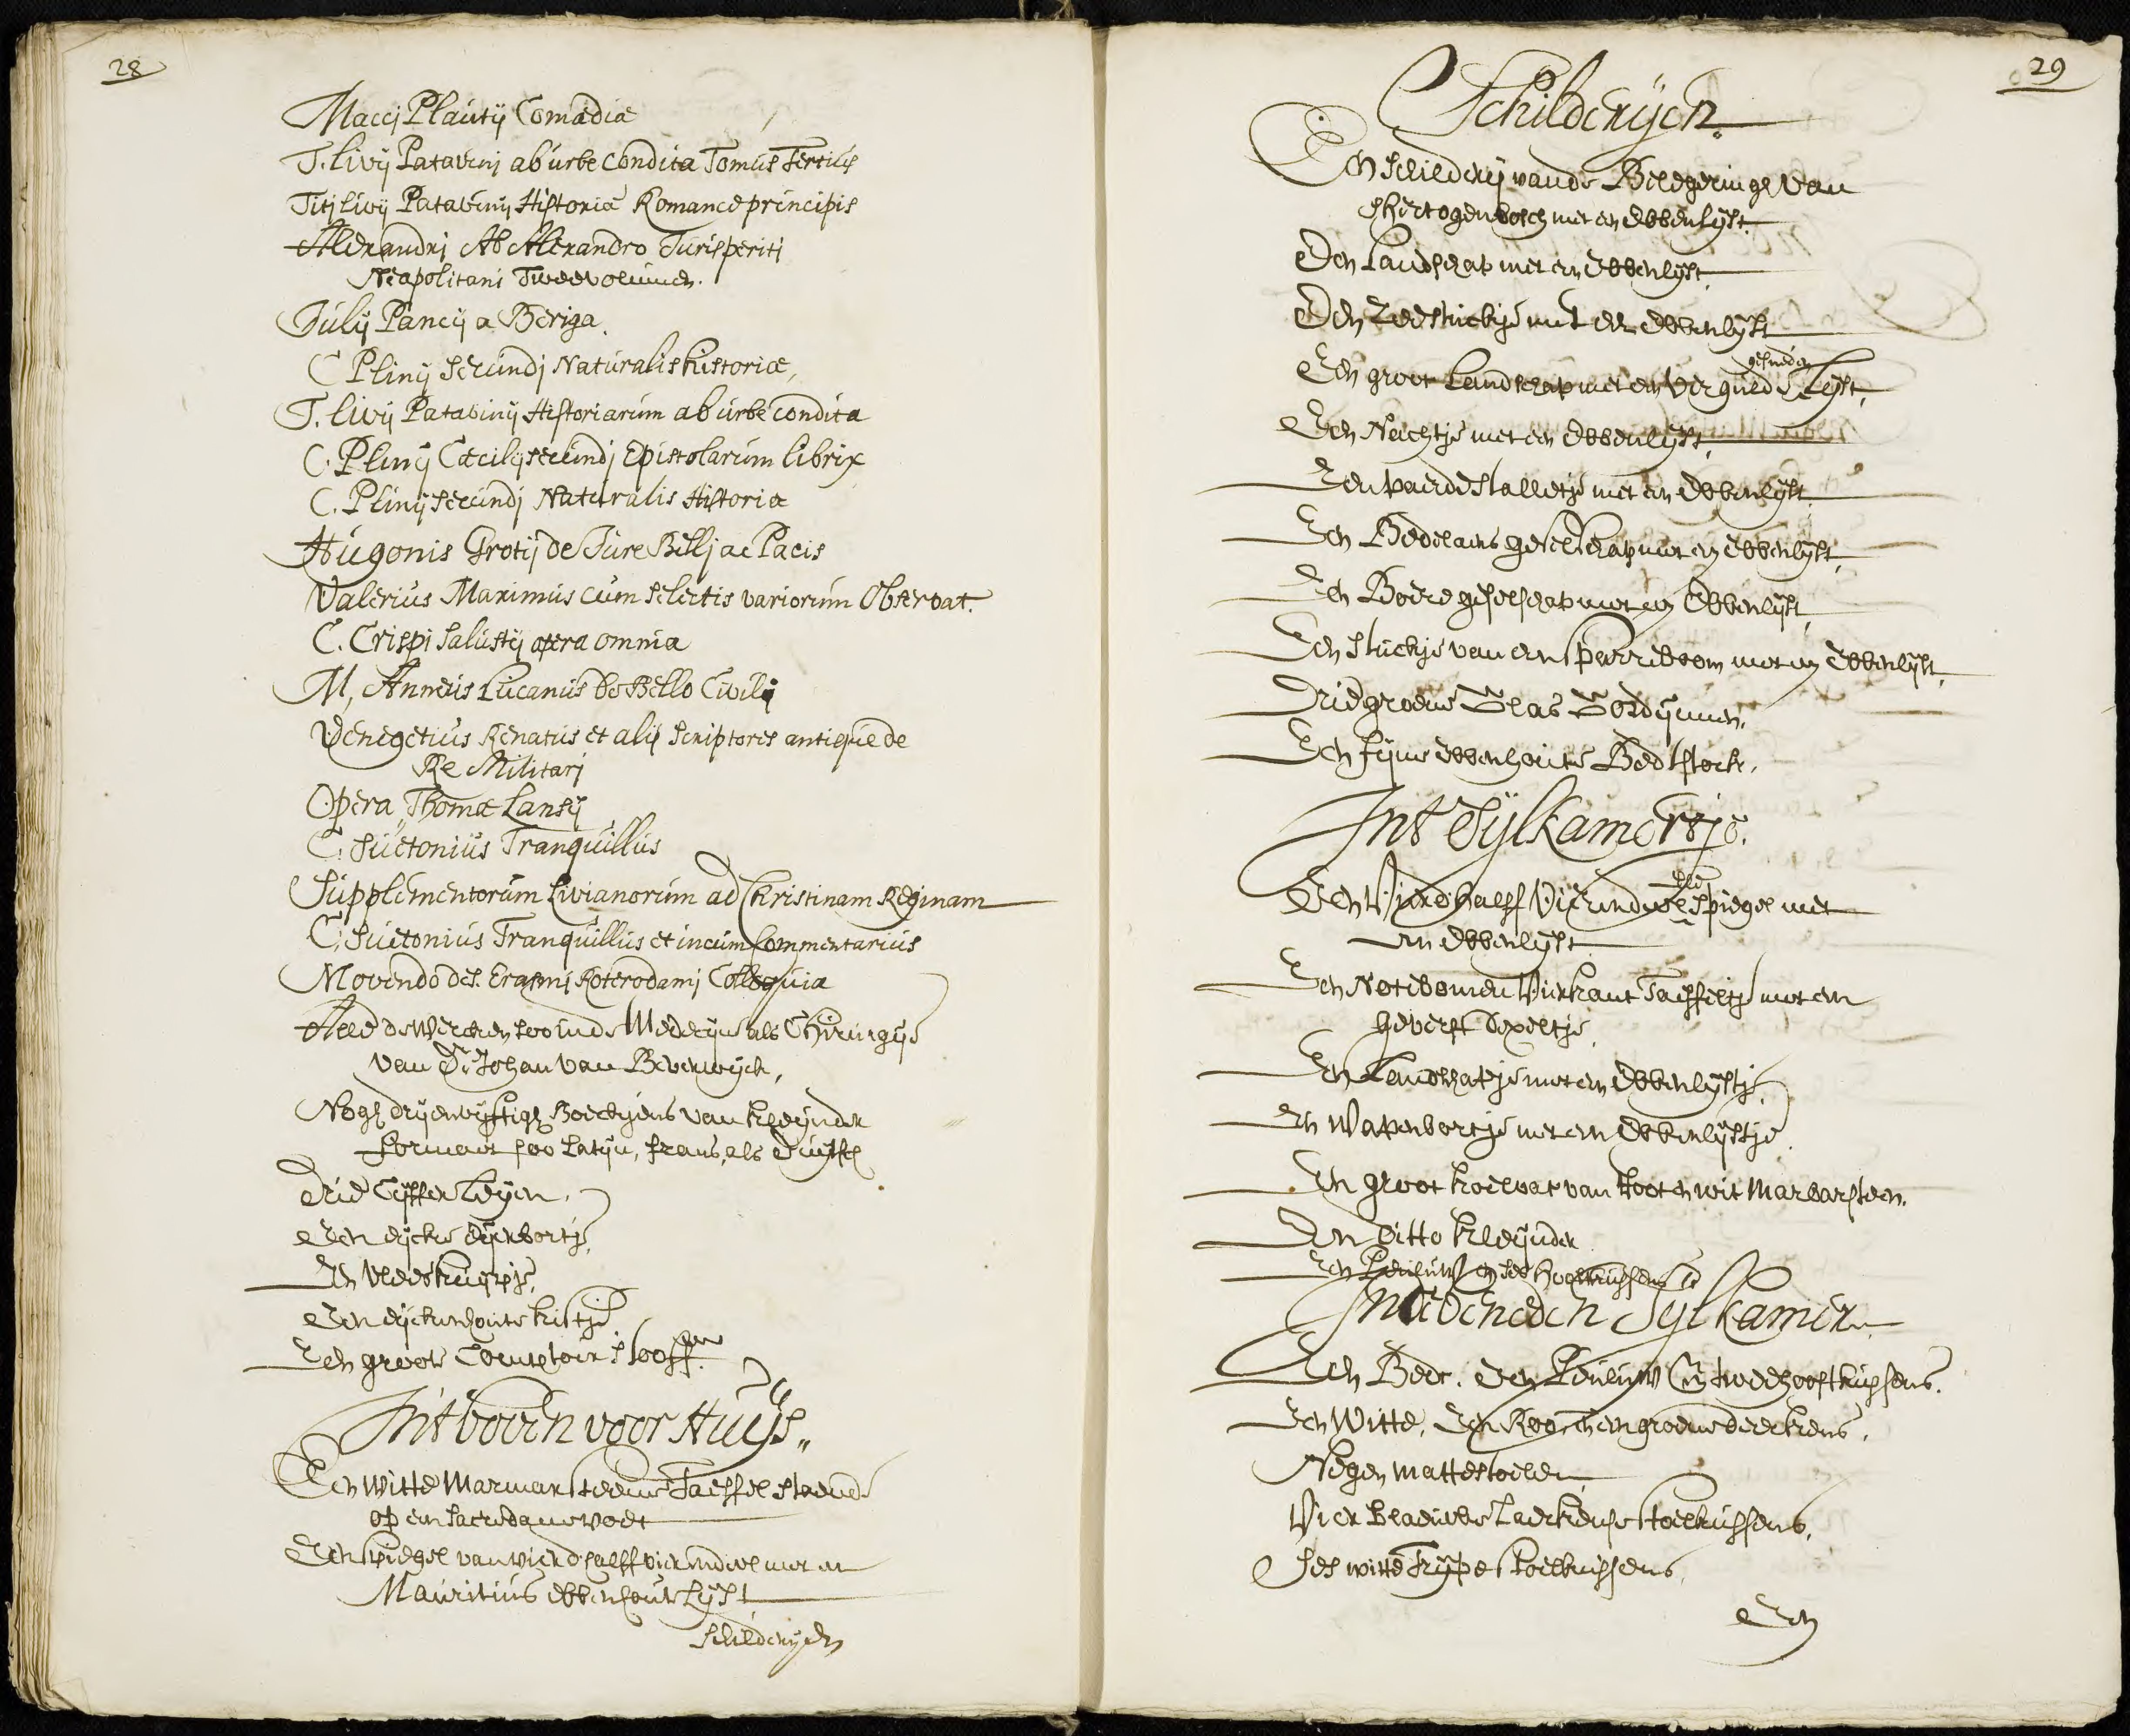 28
Maccj Plautij Comædiæ
T. livij Patavinj ab urbe condita Tomus Tertius
Titj livij Patavinij Historiæ Romanæ principis
Alexandrj Ab Alexandro Jurisperiti
Neapolitani Twee volumen.
Julij Pancij a Beriga.
C Plinij Secundj Naturalis historiæ,
T. livij Patavinij Historiarum ab urbe condita
C. Plinij Cæcilij secundj Epistolarum libri x
C. Plinij Secundj Naturalis Historiæ
Hugonis Grotij de Jure Bellj ac Pacis
Valerius Maximus cum selectis variorum Observat.
C. Crispi Salustij opera omnia
M, Anneus Lucanus de Bello Civilij
Venegetius Renatus et alij scriptores antiquæ de
Re Militarj
Opera Thomæ Lansij
C. Suetonius Tranquillus
Supplementorum Livianorum ad Christinam Reginam
C. Suetonius Tranquillus et in eum Commentarius
Movendo des. Erasmj Roterodamj Colloquia
Alle de Wercken soo in de Medecijne als Chirurgije
van Dr Johan van Beverwijck,
Nogh drijenvijftigh Boeckjens van kleijnder
formaet soo Latijn, frans, als Duijtsch
Drie Cijffer Leijen,
Een eijcke Cijferbortje,
Een vleeskuijpje,
Een eijckenhoute kistje
Een groote Comptoir sloof
Int boven voor Huijs,,
Een witte Marmersteene Taeffel staende
op een sacredane voet
Een spiegel van vierdhalff vierendeel met een
Mauritius ebbenhoute Lijst
schilderijen
29
Schilderijen.
Een schilderij van de Belegeringh van
sHertogenbosch met een Ebbenlijst.
Een Landschap met een Ebbenlijst.
Een Zeestuckje met een Ebbenlijst
gesneden
Een groot Landschap met een vergulde Lijst,
Een Nachtje met een Ebbenlijst,
Een paerde stalletje met een Ebbenlijst,
Een Bedelaers geselschap met een Ebbenlijst,
Een Boere geselschap met een Ebbenlijst,
Een stuckje van een sparreboom met een Ebbenlijst,
Drie groene Glas Gordijnen,
Een fijne ebbenhoute Bedtstock,
Int Sijlkamertje.
Een Vierdhalff Vierendeel spiegel met
een Ebbenlijst
Een Noteboomen Vierkant Taeffeltje met een
geverft Voxeltje
Een Landschapje met een Ebbenlijstje,
Een Wapenbortje met een Ebbenlijstje,
Een groot koelvat van root en wit Marbersteen.
Een ditto kleijnder
Een Peuluw en ses hooftkussens
In de beneden Sijlkamer.
Een Bedt. Een Peuluw En twee hooftkussens.
Een Witte, Een Roo, en een groene deeckens,
Negen mattestoelen
Vier blaeuwe Laeckense stoelkussens,
Ses witte Trijpe stoelkussens,
Een